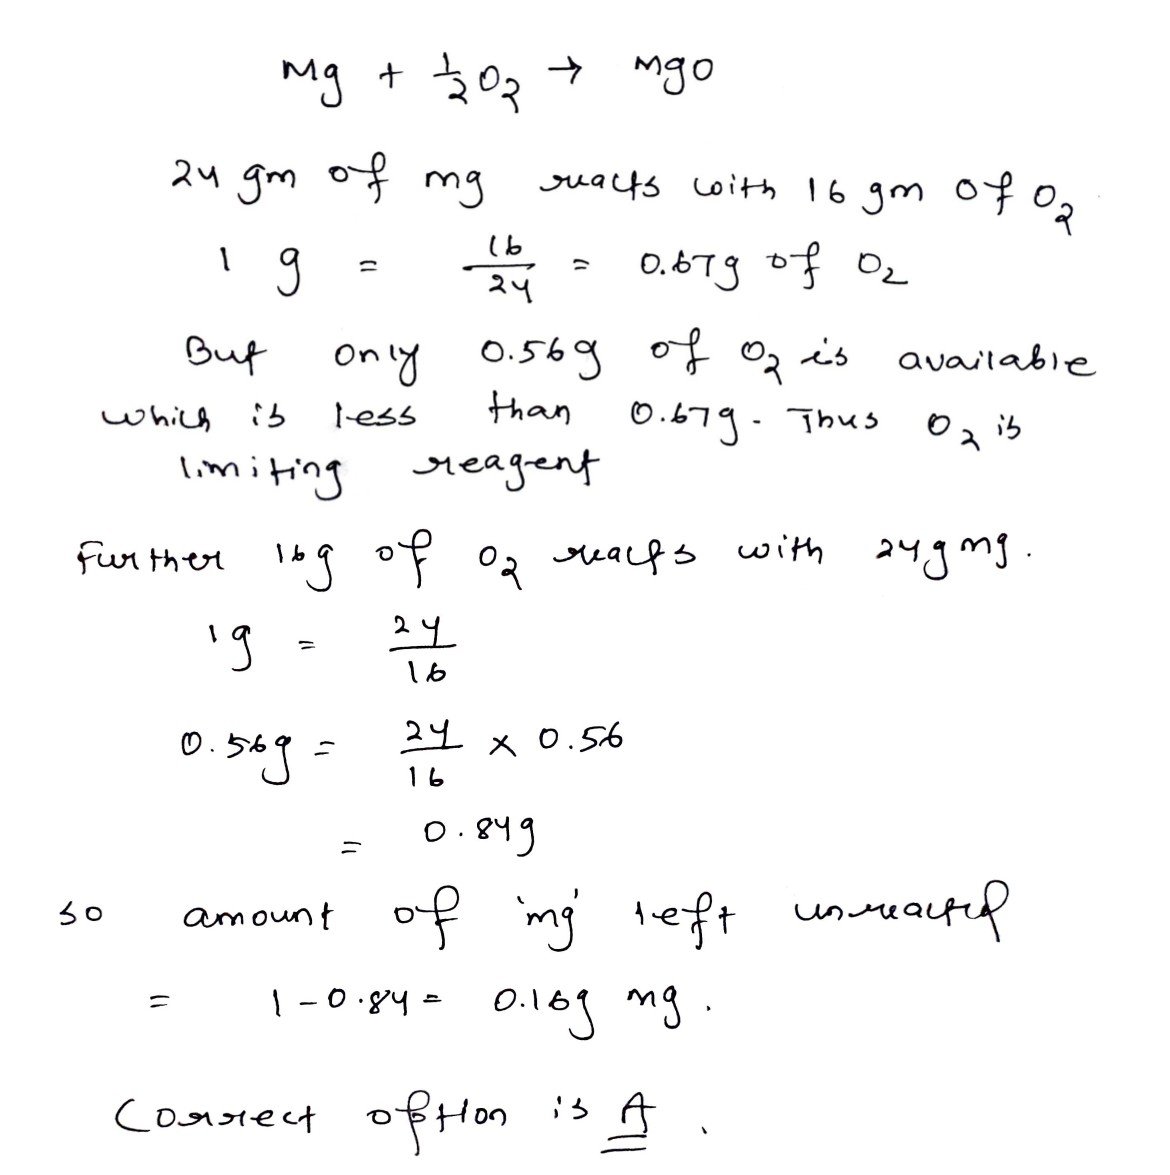 Mg + 1/2 O2 → MgO
24 gm of mg reacts with 16 gm of O2
1 g = 16/24 = 0.67g of O2
But only 0.56g of O2 is available
which is less than 0.67g. Thus O2 is
limiting reagent
Further 16g of O2 reacts with 24g mg.
1g = 24/16
0.56g = 24/16 × 0.56
= 0.84g
so amount of 'mg' left unreacted
= 1 - 0.84 = 0.16g mg.
Correct option is A.